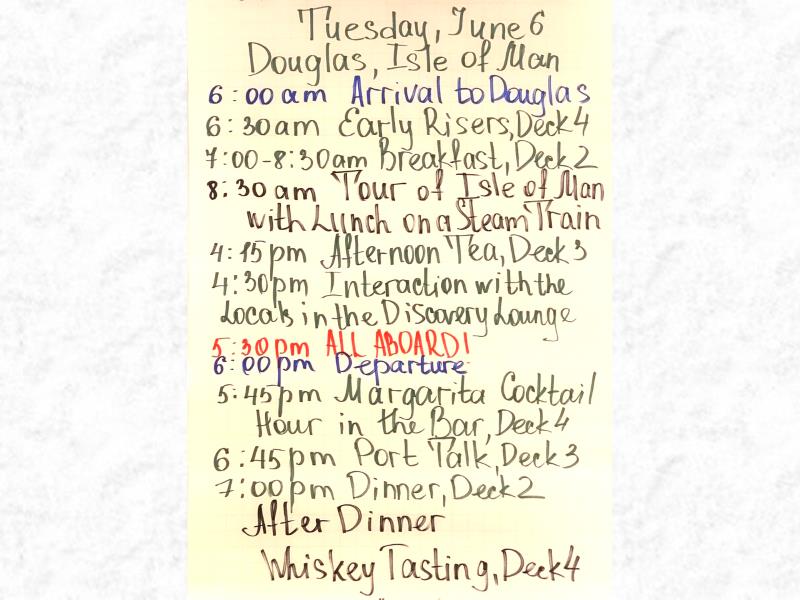 Tuesday, June 6
Douglas, Isle of Man
6:00 am Arrival to Douglas
6:30am Early Risers, Deck 4
7:00-8:30am Breakfast, Deck 2
8:30 am Tour of Isle of Man
with Lunch on a Steam Train
4:15pm Afternoon Tea, Deck 3
4:30pm Interaction with the
Locals in the Discovery Lounge
5:30pm ALL ABOARD!
6:00pm Departure
5:45pm Margarita Cocktail
Hour in the Bar, Deck 4
6:45pm Port Talk, Deck 3
7:00pm Dinner, Deck 2
After Dinner
Whiskey Tasting, Deck 4